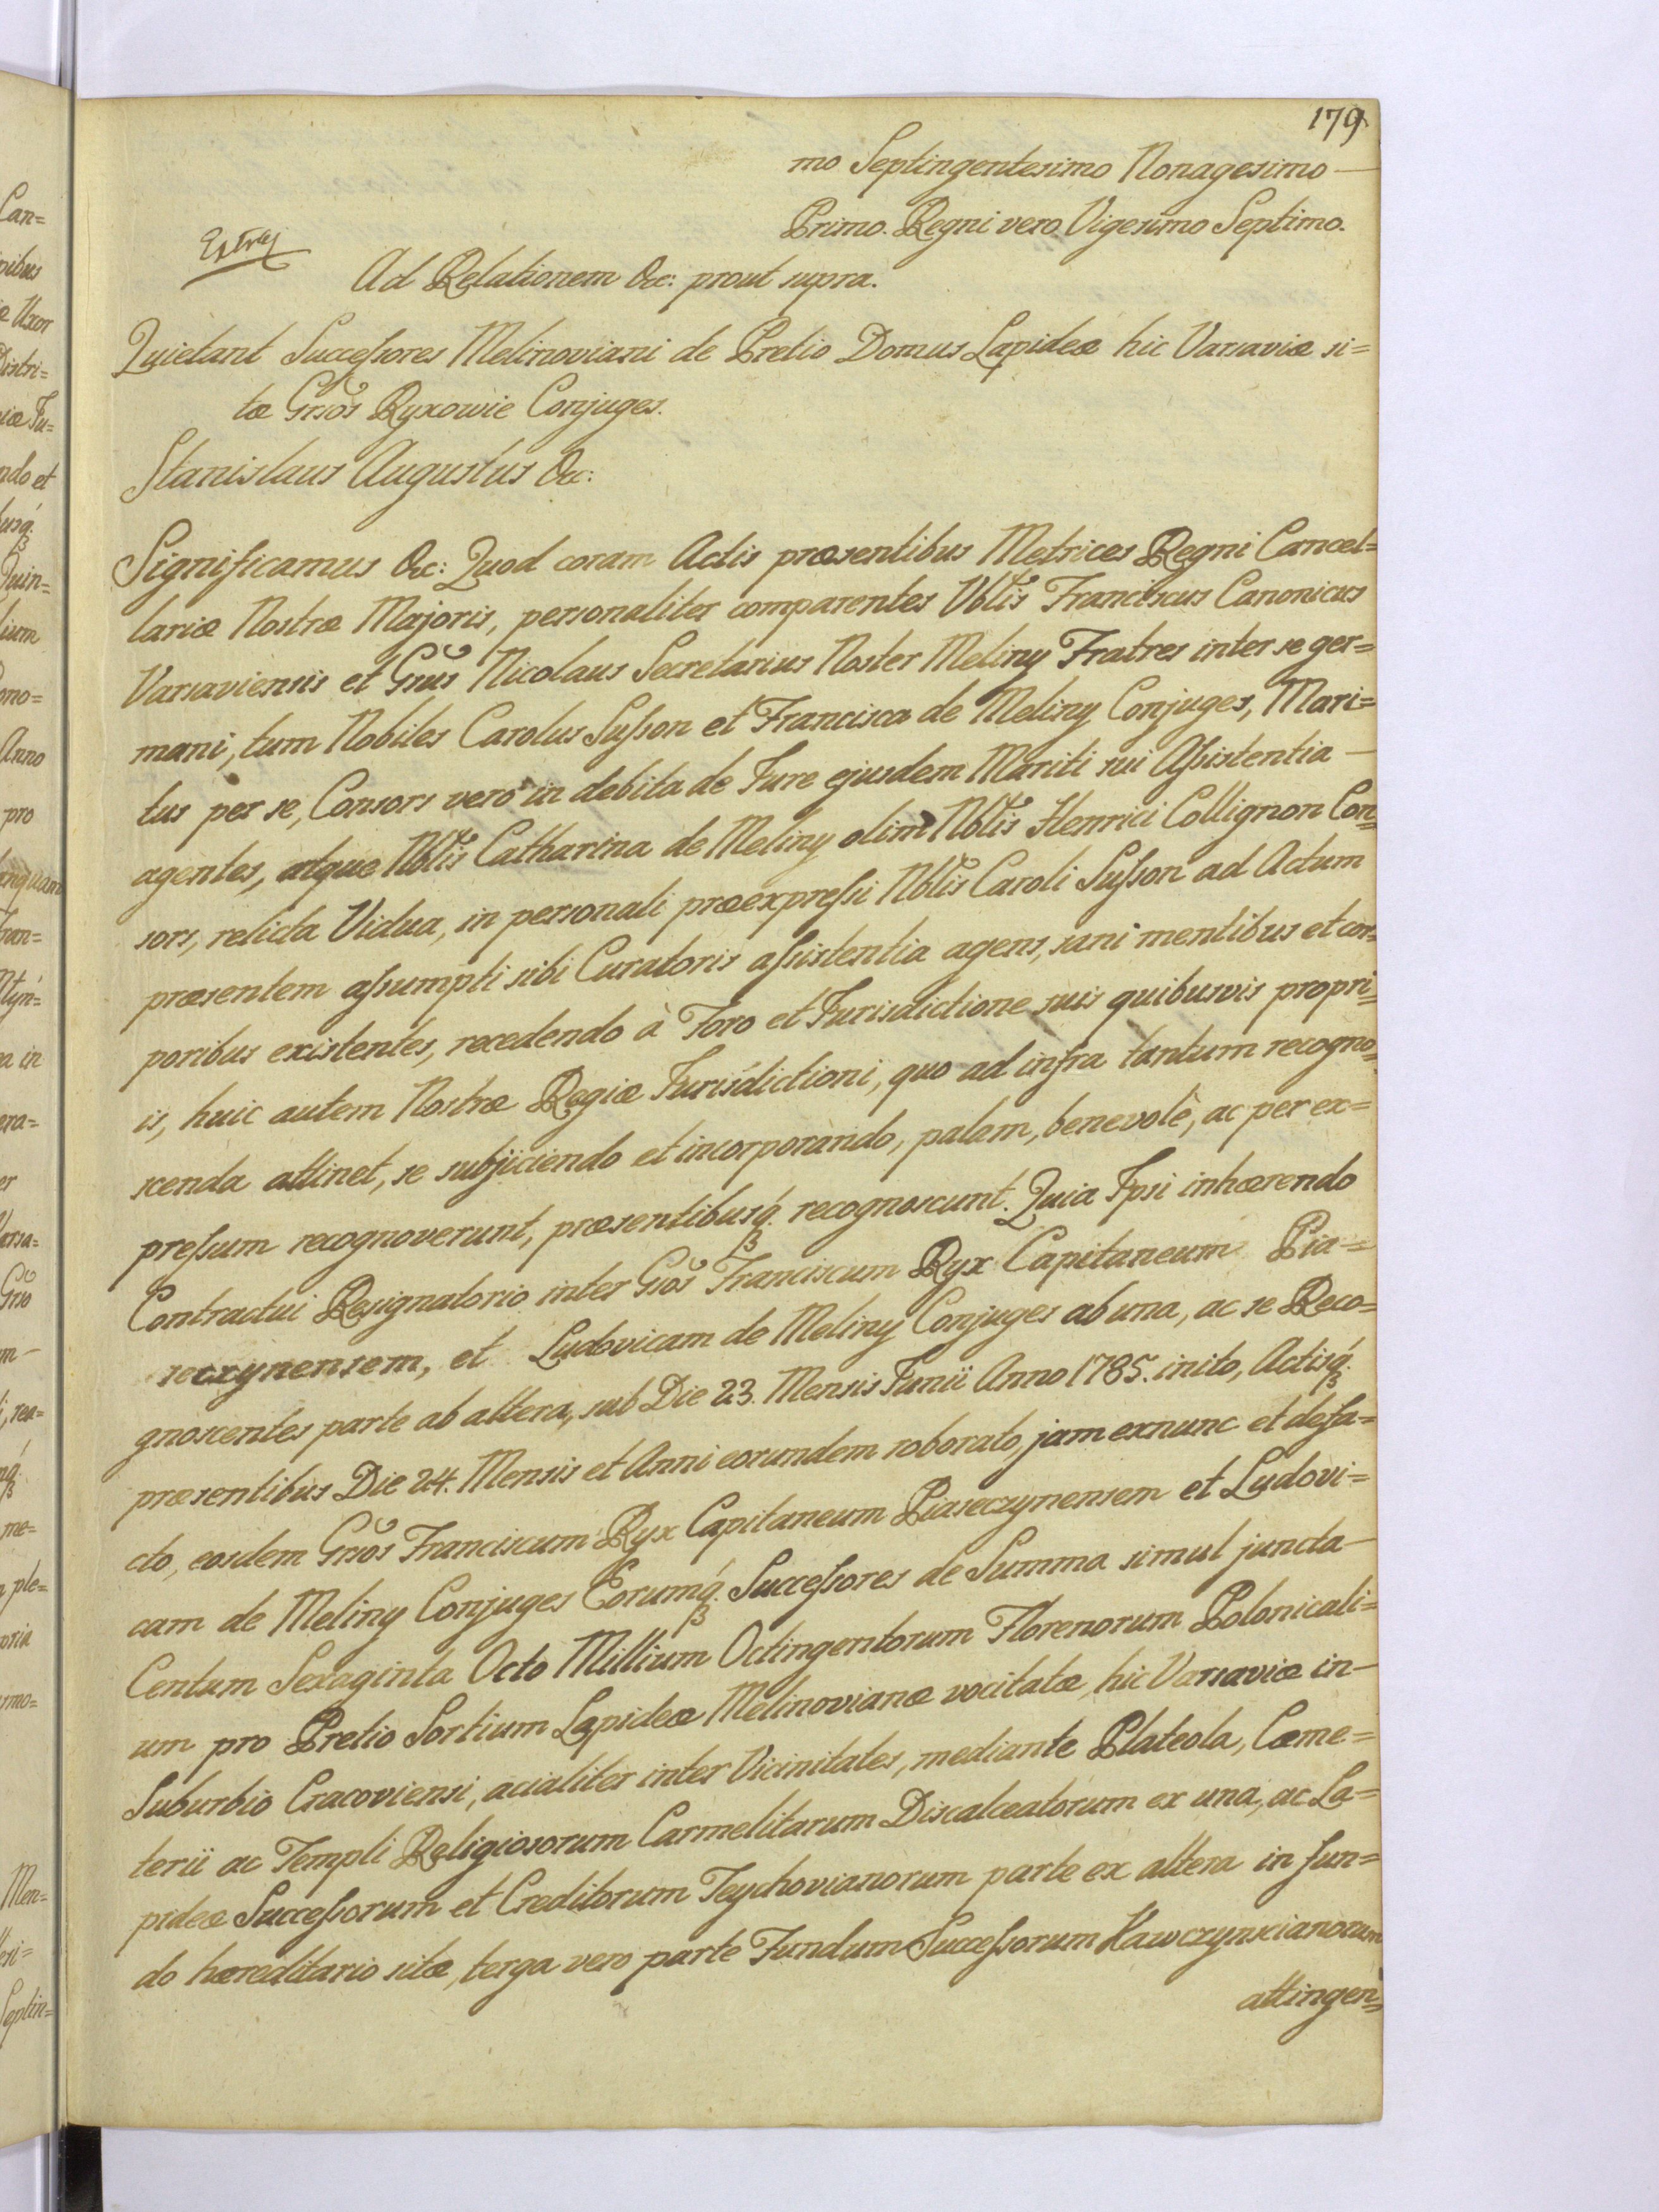 179
mo Septingentesimo Nonagesimo —
Primo. Regni vero Vigesimo Septimo.
Ad Relationem &c: prout supra.
Quietant Succeſsores Melinoviani de Pretio Domus Lapideæ hic Varsaviæ si=
tæ Grsos Ryxowie Conjuges.
Stanislaus Augustus &c:
Significamus &c: Quod coram Actis præsentibus Metrices Regni Cancel=
lariæ Nostræ Majoris, personaliter comparentes Vblis Franciscus Canonicus
Varsaviensis et Grsus Nicolaus Secretarius Noster Meliny Fratres inter se ger=
mani, tum Nobiles Carolus Suſson et Francisca de Meliny Conjuges, Mari=
tus per se, Consors vero in debita de Jure ejusdem Mariti sui Aſsistentia —
agentes, atque Nblis Catharina de Meliny olim Nblis Henrici Collignon Con=
sors, relicta Vidua, in personali præexpreſsi Nblis Caroli Suſson ad Actum
præsentem aſsumpti sibi Curatoris aſsistentia agens, sani mentibus et cor=
poribus existentes, recedendo à Foro et Jurisdictione suis quibusvis propri=
is, huic autem Nostræ Regiæ Jurisdictioni, quo ad infra tantum recogno=
scenda attinet, se subjiciendo et incorporando, palam, benevolè, ac per ex=
preſsum recognoverunt, præsentibusq́. recognoscunt. Quia Ipsi inhærendo
Contractui Resignatorio inter Grsos Franciscum Ryx Capitaneum Pia=
seczynensem, et Ludovicam de Meliny Conjuges ab una, ac se Reco=
gnoscentes parte ab altera, sub Die 23. Mensis Junii Anno 1785. inito, Actisq́.
præsentibus Die 24. Mensis et Anni eorundem roborato, jam exnunc et defa=
cto, eosdem Grsos Franciscum Ryx Capitaneum Piaseczynensem et Ludovi=
cam de Meliny Conjuges Eorumq́. Succeſsores de Summa simul juncta —
Centum Sexaginta Octo Millium Octingentorum Florenorum Polonicali=
um pro Pretio Sortium Lapideæ Melinovianæ vocitatæ, hic Varsaviæ in —
Suburbio Cracoviensi, acialiter inter Vicinitates, mediante Plateola, Cæme=
terii ac Templi Religiosorum Carmelitarum Discalceatorum ex una, ac La=
pideæ Succeſsorum et Creditorum Teychovianorum parte ex altera in fun=
do hæreditario sitæ, terga vero parte Fundum Succeſsorum Kawczynscianorum
attingen=